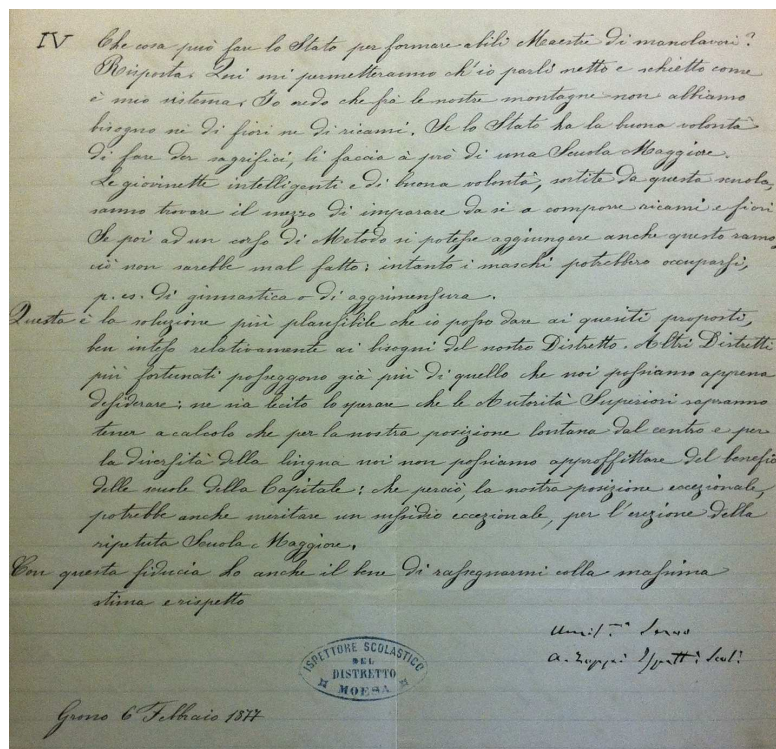 IV Che cosa può fare lo Stato per formare abili Maestre di manolavori?
Risposta. Qui mi permetteranno ch'io parli netto e schietto come
è mio sistema. Io credo che frà le nostre montagne non abbiamo
bisogno nè di fiori ne di ricami. Se lo Stato ha la buona volontà
di fare dei sagrifici, li faccia à prò di una Scuola Maggiore.
Le giovinette intelligenti e di buona volontà, sortite da questa scuola,
sanno trovare il mezzo di imparare da sè a comporre ricami e fiori
Se poi ad un corso di Metodo si potesse aggiungere anche questo ramo,
ciò non sarebbe mal fatto; intanto i maschi potrebbero occuparsi,
p. es. di ginnastica o di aggrimensura.
Questa è la soluzione più plausibile che io posso dare ai quesiti proposti,
ben inteso relativamente ai bisogni del nostro Distretto. Altri Distretti
più fortunati posseggono già più di quello che noi possiamo appena
desiderare; ne sia lecito lo sperare che le Autorità Superiori sapranno
tener a calcolo che per la nostra posizione lontana dal centro e per
la diversità della lingua noi non possiamo approffittare del benefic
delle scuole della Capitale; che perciò la nostra posizione eccezionale,
potrebbe anche meritare un sussidio eccezionale, per l'erezione della
ripetuta Scuola Maggiore.
Con questa fiducia ho anche il bene di rassegnarmi colla massima
stima e rispetto
Servo
a.
ISPETTORE SCOLASTICO
DEL
DISTRETTO
MOESA
Grono 6 Febbraio 1877